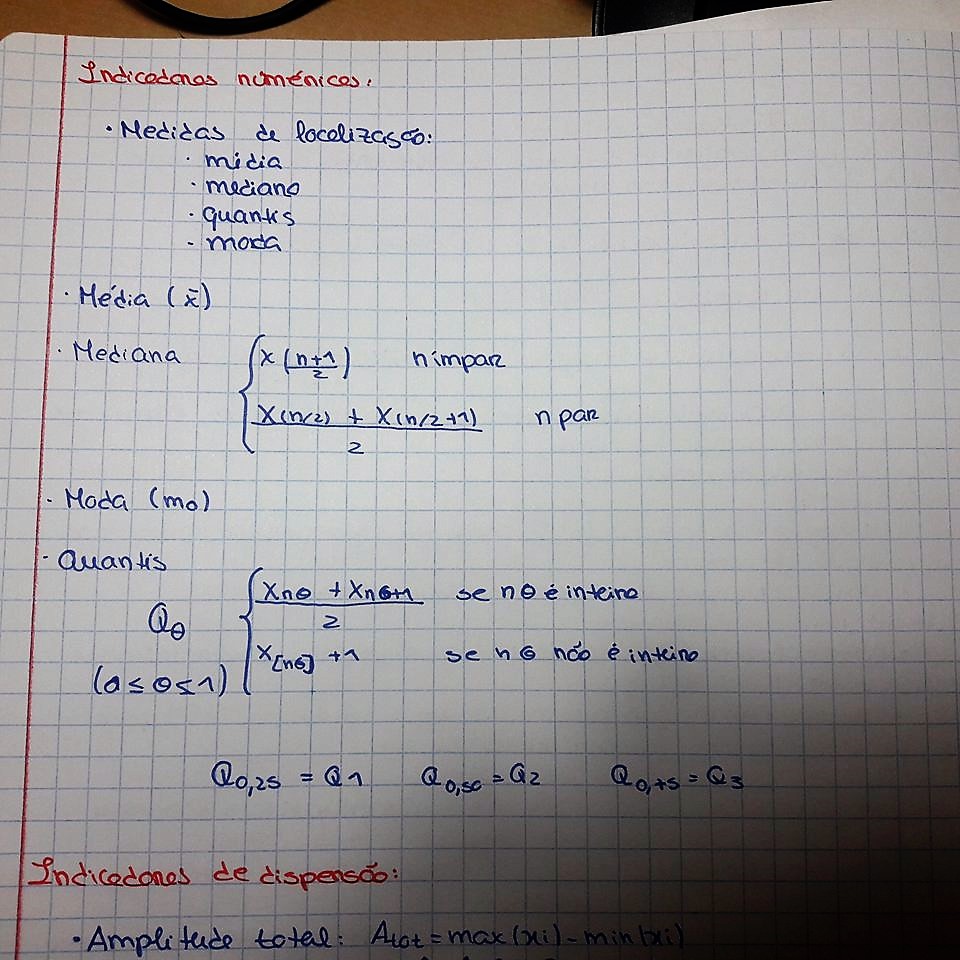 Indicadores numéricos:
· Medidas de localização:
· média
· mediana
· quantis
· moda
· Média (x̄)
· Mediana { x((n+1)/2) n ímpar
(x(n/2) + x(n/2+1))/2 n par
· Moda (mo)
· Quantis
Qθ { (xnθ + xnθ+1)/2 se nθ é inteiro
(0 ≤ θ ≤ 1) x[nθ] +1 se nθ não é inteiro
Q0,25 = Q1 Q0,50 = Q2 Q0,75 = Q3
Indicadores de dispersão:
· Amplitude total: Atot = max(xi) - min(xi)